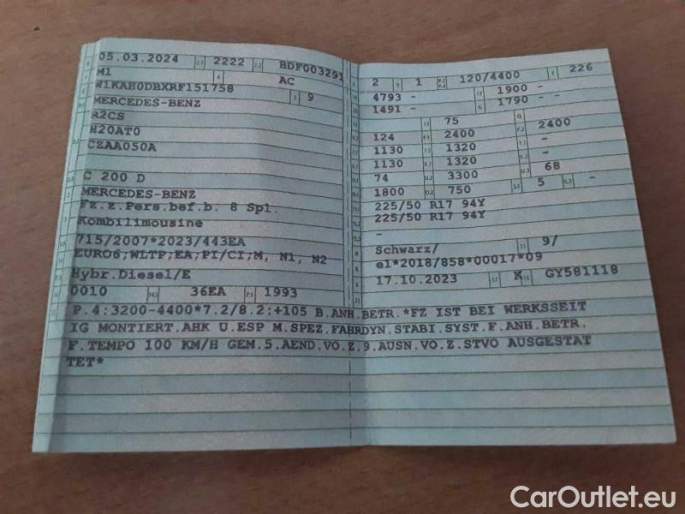 05.03.2024 2222 BDF003291
M1 AC
W1KAH0DBXRF151758 9
MERCEDES-BENZ
R2CS
H20AT0
CZAA050A
C 200 D
MERCEDES-BENZ
Fz.z.Pers.bef.b. 8 Spl.
Kombilimousine
715/2007*2023/443EA
EURO6;WLTP;EA;PI/CI;M, N1, N2
Hybr.Diesel/E
0010 36EA 1993
2 1 120/4400 226
4793 - 1900 -
1491 - 1790 --
75
124 2400 2400
1130 1320 -
1130 1320 -
74 3300 68
1800 750 5 -
225/50 R17 94Y
225/50 R17 94Y
-
Schwarz/ 9/
e1*2018/858*00017*09
17.10.2023 K GY581118
P.4:3200-4400*7.2/8.2:+105 B.ANH.BETR.*FZ IST BEI WERKSSEIT
IG MONTIERT.AHK U.ESP M.SPEZ.FAHRDYN.STABI.SYST.F.ANH.BETR.
F.TEMPO 100 KM/H GEM.5.AEND.VO.Z.9.AUSN.VO.Z.STVO AUSGESTAT
TET*
CarOutlet.eu